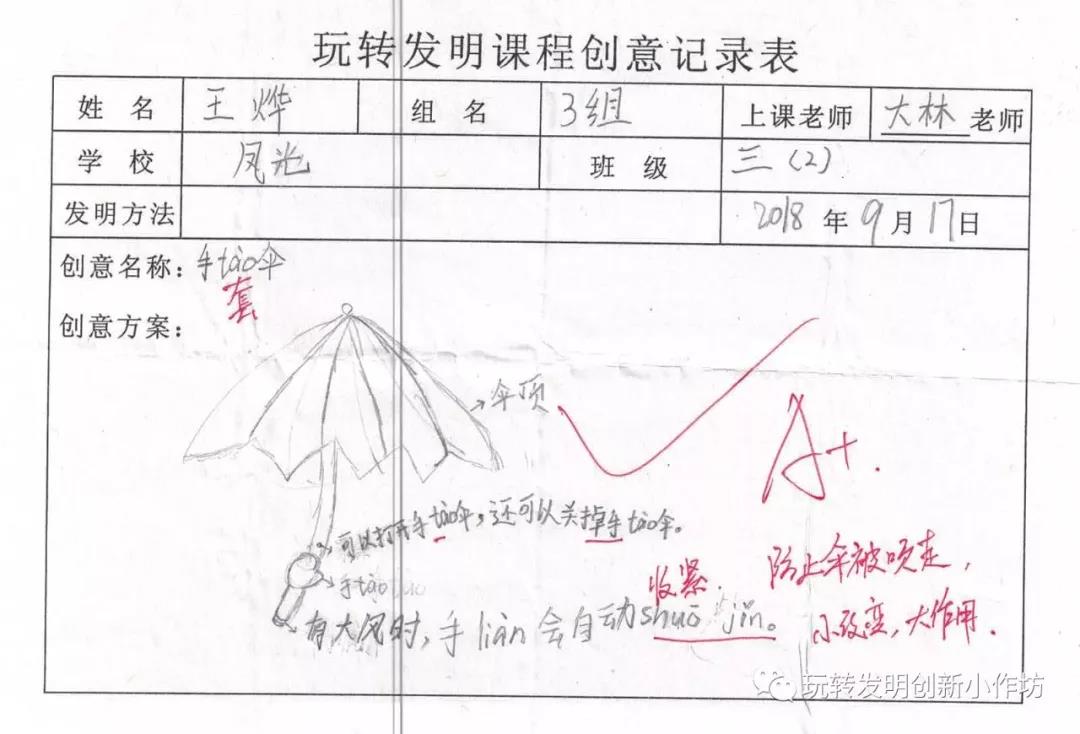 玩转发明课程创意记录表
姓 名 王烨 组 名 3组 上课老师 大林 老师
学 校 凤光 班 级 三(2)
发明方法 2018 年 9 月 17 日
创意名称：手tào伞
套
创意方案：
伞顶
A+.
可以打开手tào伞，还可以关掉手tào伞。
手tào
收紧. 防止伞被吹走，
有大风时，手liàn会自动shuō jǐn。 小改变，大作用.
玩转发明创新小作坊